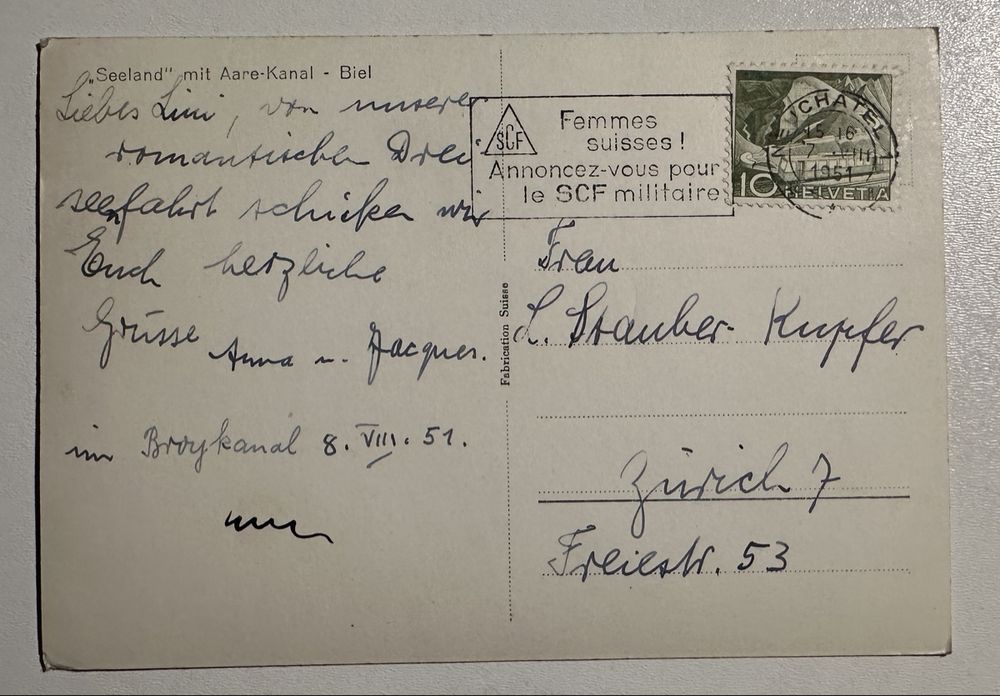 "Seeland" mit Aare-Kanal - Biel
Liebes Lini, von unserer
romantischen Drei
seenfahrt schicken wir
Euch herzliche
Grüsse Anna u. Jacques.
im Broykanal 8. VIII. 51.
Fabrication Suisse
SCF
Femmes
suisses !
Annoncez-vous pour
le SCF militaire
CHATEL
15 16
1951
10 HELVETIA
Frau
L. Stauber-Kupfer
Zürich 7
Freiestr. 53